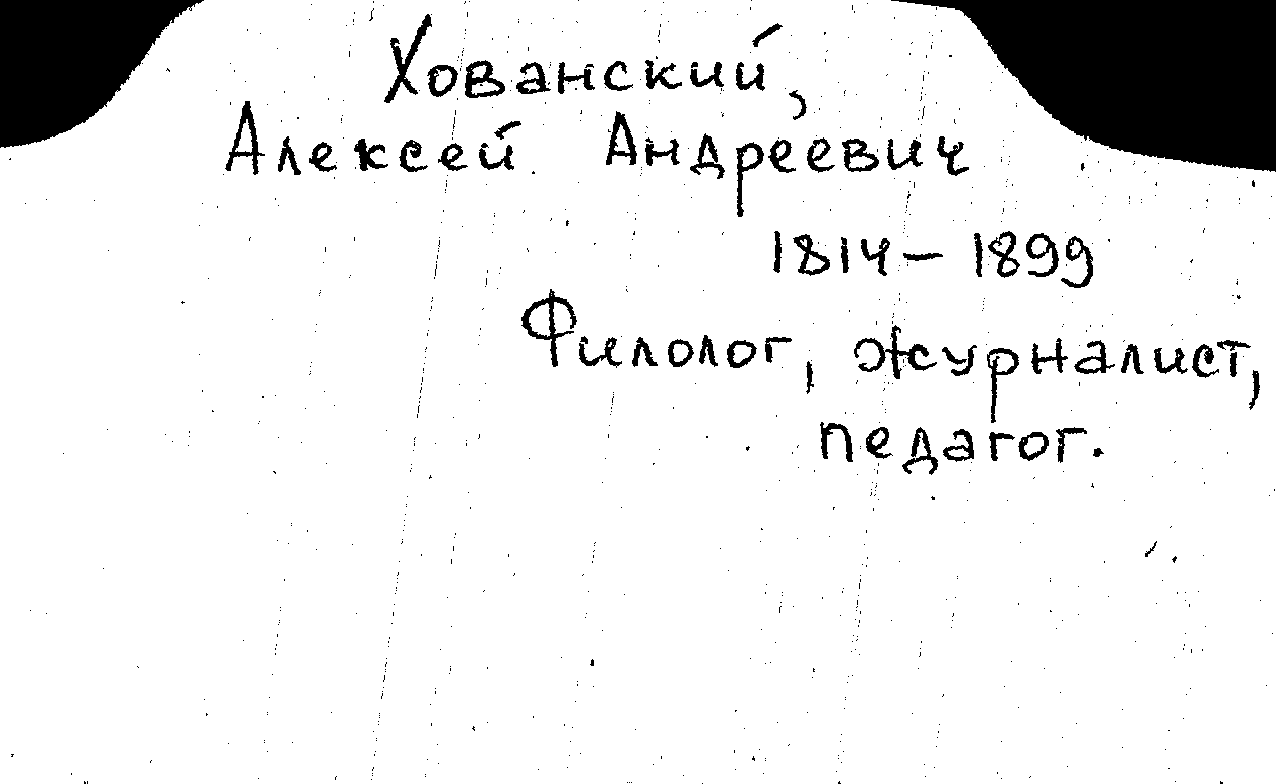 Хованский,
Алексей Андреевич
1814 – 1899
Филолог, журналист,
педагог.